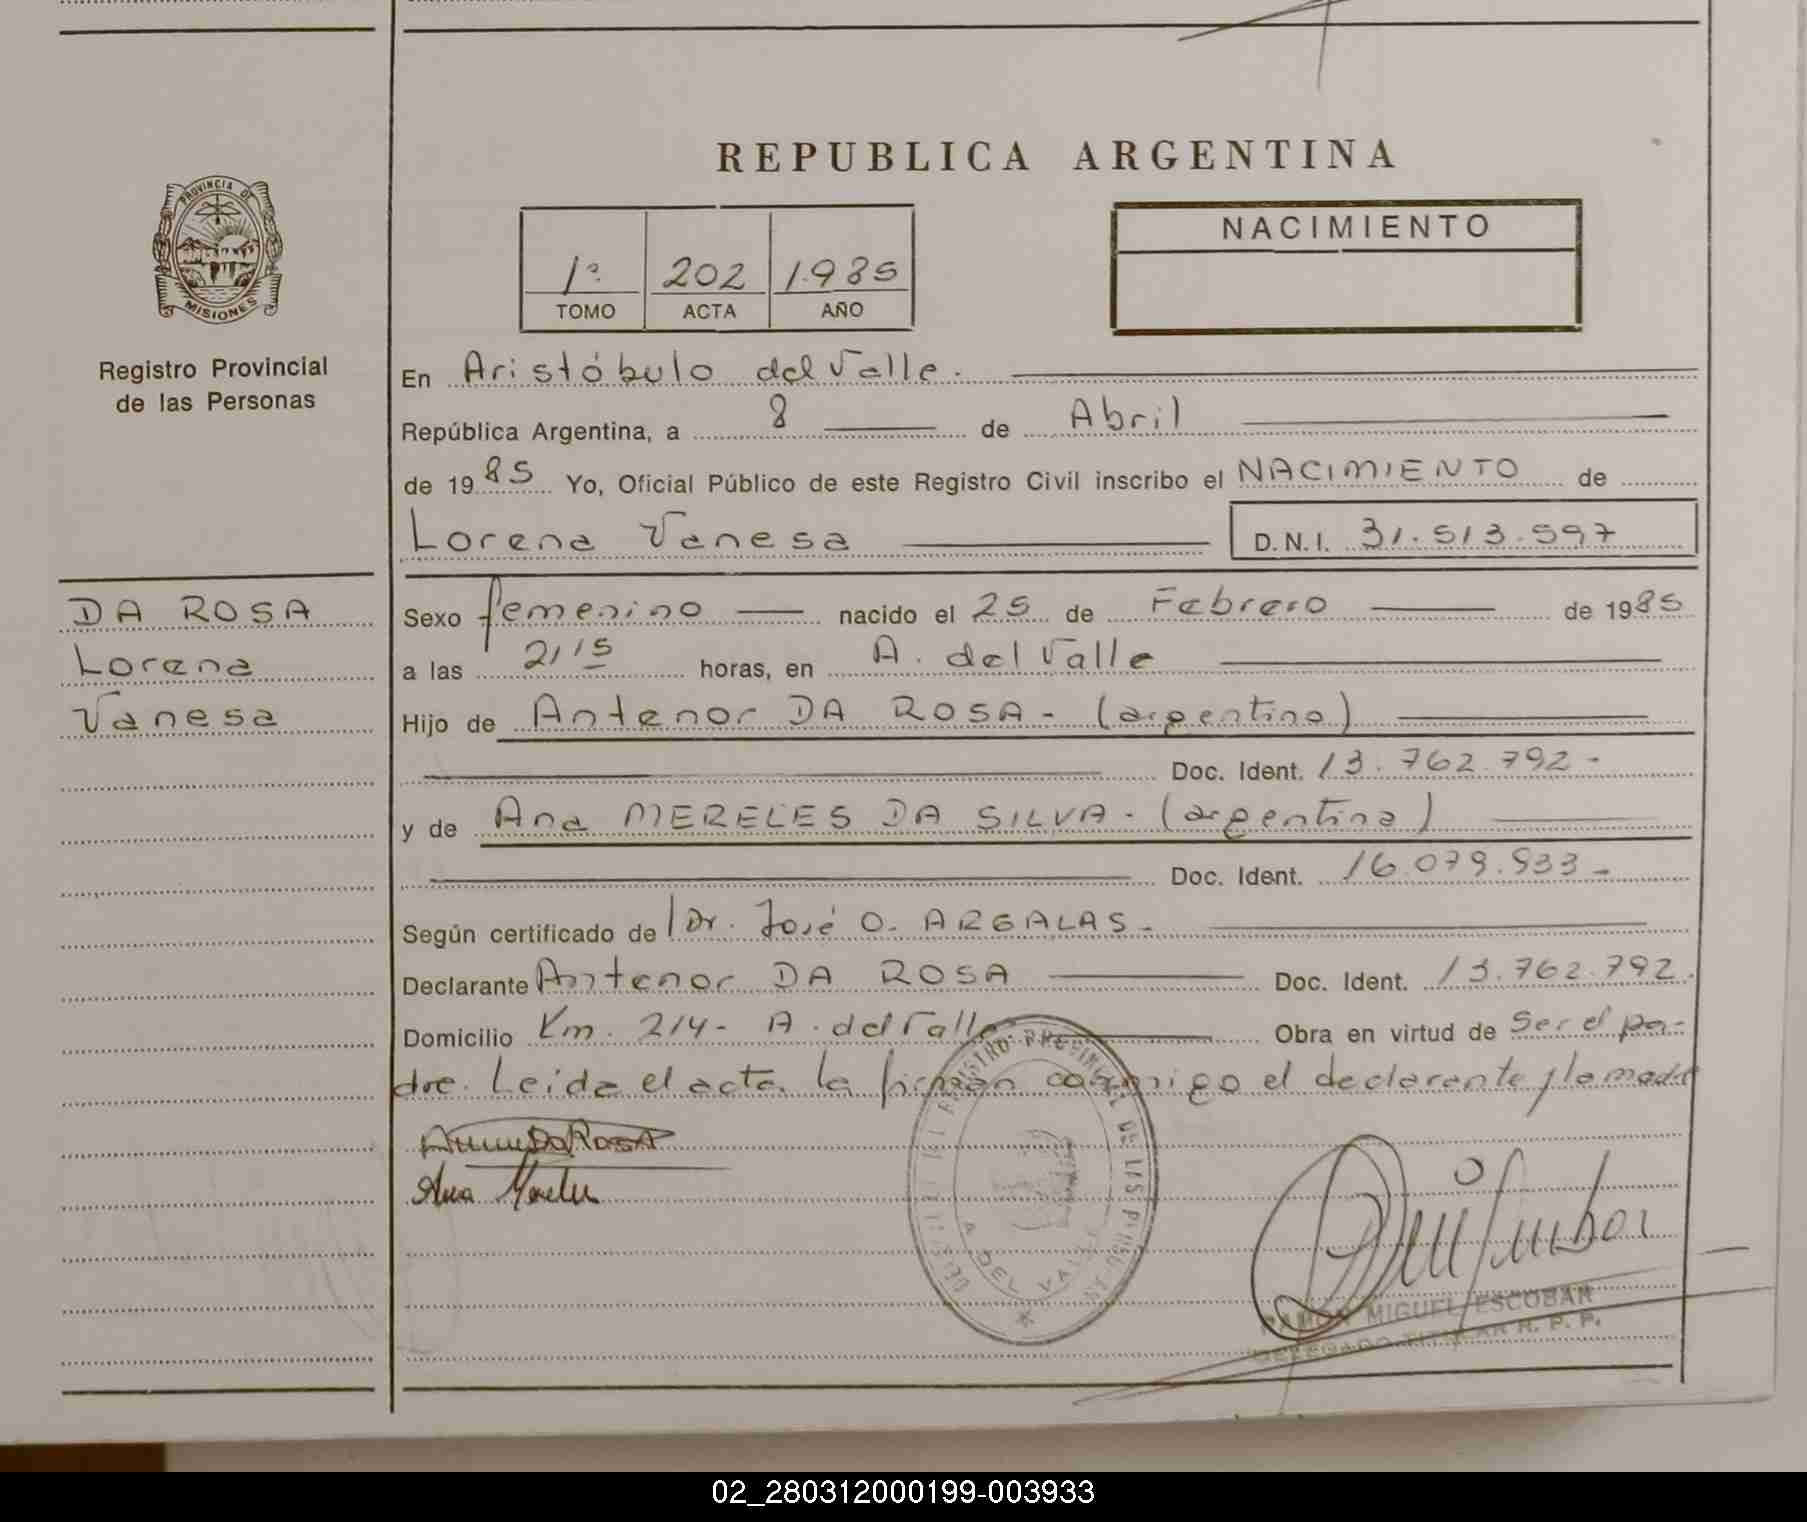 REPUBLICA ARGENTINA
PROVINCIA DE
MISIONES
Registro Provincial
de las Personas
1º 202 1.985
TOMO ACTA AÑO
NACIMIENTO
En Aristóbulo del Valle.
República Argentina, a 8 de Abril
de 1985 Yo, Oficial Público de este Registro Civil inscribo el NACIMIENTO de
Lorena Vanesa D.N.I. 31.513.597
DA ROSA
Lorena
Vanesa
Sexo femenino nacido el 25 de Febrero de 1985
a las 21,15 horas, en A. del Valle
Hijo de Antenor DA ROSA - (argentino)
Doc. Ident. 13.762.792 -
y de Ana MERELES DA SILVA - (argentina)
Doc. Ident. 16.079.933 -
Según certificado de Dr. José O. ARGALAS -
Declarante Antenor DA ROSA Doc. Ident. 13.762.792.
Domicilio Km. 214 - A. del Valle Obra en virtud de Ser el pa-
dre. Leída el acta, la firman conmigo el declarante y la madre
DA ROSA
Ana
REGISTRO PROVINCIAL DE LAS PERSONAS
A DEL VALLE
RAMÓN MIGUEL ESCOBAR
DELEGADO TITULAR R. P. P.
02_280312000199-003933